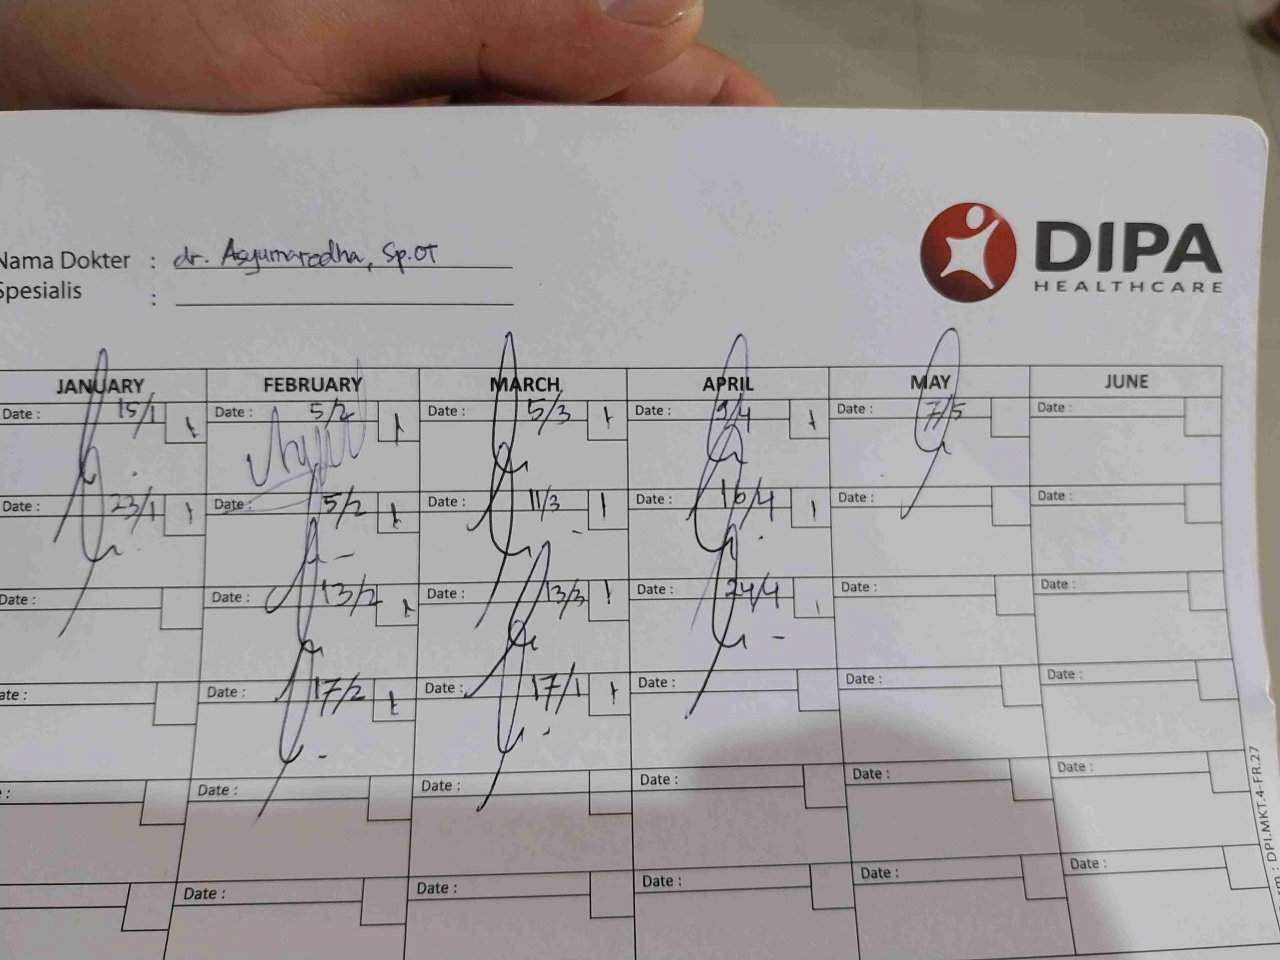 DIPA
HEALTHCARE
Nama Dokter : dr. Asyumaredha, Sp.OT
Spesialis :
JANUARY FEBRUARY MARCH APRIL MAY JUNE
Date : 15/1 Date : 5/2 Date : 5/3 Date : 9/4 Date : 7/5 Date :
Date : 23/1 Date : 5/2 Date : 11/3 Date : 16/4 Date : Date :
Date : Date : 13/2 Date : 13/3 Date : 24/4 Date : Date :
ate : Date : 17/2 Date : 17/1 Date : Date : Date :
e : Date : Date : Date : Date : Date :
Date : Date : Date : Date : Date :
: DPI.MKT.4-FR.27